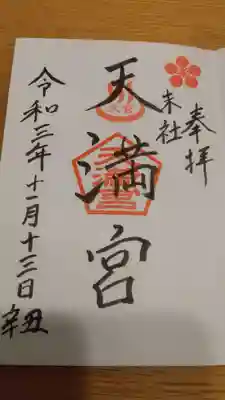 奉拝
末社
天満宮
令和三年十一月十三日 辛丑